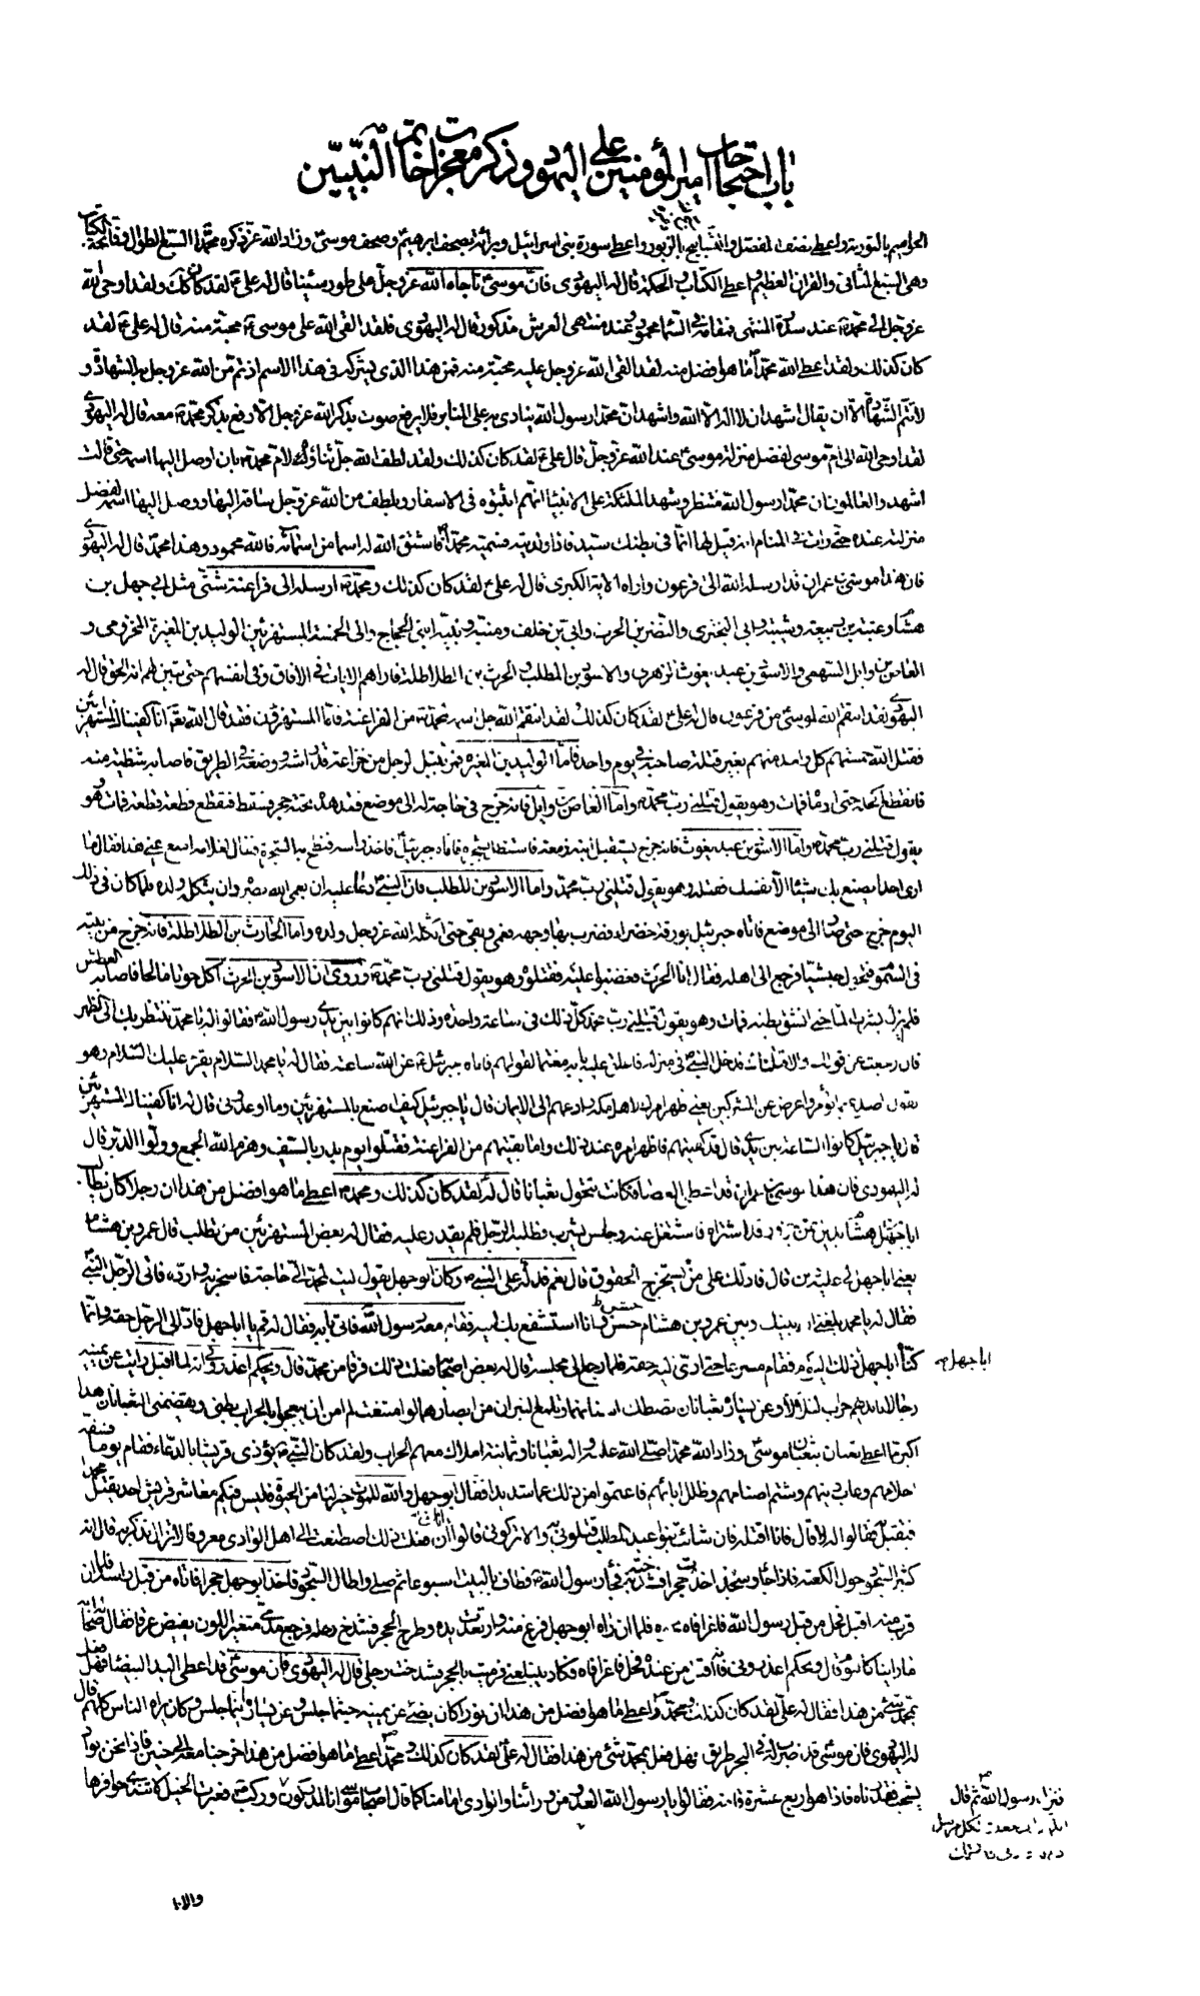 باب احتجاجات أمير المؤمنين على اليهود وذكر معجزات خاتم النبيّين
الحواميم بالتورية واعطى نصف المفصل والتسابيح بالزبور واعطى سورة بنى اسرائيل وبرائة بصحف ابرهيم وصحف موسى وزاد الله عز ذكره محمدا السبع الطول وفاتحة الكتاب
وهى السبع المثانى والقران العظيم واعطى الكتاب والحكمة قال له اليهودى فان موسى ناجاه الله عز وجل على طور سيناء قال له على لقد كان كذلك ولقد اوحى الله
عز وجل الى محمد عند سدرة المنتهى فمقامه فى السماء محمود وعند منتهى العرش مذكور قال له اليهودى فلقد القى الله على موسى محبة منه قال له على لقد
كان كذلك ولقد اعطى الله محمدا ما هو افضل منه لقد القى الله عز وجل عليه محبة منه فمن هذا الذى يشركه فى هذا الاسم اذ تم من الله عز وجل به الشهادة و
لا تتم الشهادة الا ان يقال اشهد ان لا اله الا الله واشهد ان محمدا رسول الله ينادى به على المنابر فلا يرفع صوت بذكر الله عز وجل الا رفع بذكر محمد معه قال له اليهودى
لقد اوحى الله الى ام موسى لفضل منزلة موسى عند الله عز وجل قال على لقد كان كذلك ولقد لطف الله جل ثناؤه لام محمد بان اوصل اليها اسمه حتى قالت
اشهد والعالمون ان محمدا رسول الله منتظر وشهد الملئكة على الانبياء انهم اثبتوه فى الاسفار وبلطف من الله عز وجل ساقه اليها ووصل اليها اسمه لفضل
منزلته عنده حتى رات فى المنام انه قيل لها ان ما فى بطنك سيد فاذا ولدته فسميه محمدا فاشتق الله له اسما من اسمائه فالله محمود وهذا محمد قال له اليهودى
فان هذا موسى بن عمران قد ارسله الله الى فرعون واراه الاية الكبرى قال له على لقد كان كذلك ومحمد ارسله الى فراعنة شتى مثل ابى جهل بن
هشام وعتبة بن ربيعة وشيبة وابى البخترى والنضر بن الحرث وابى بن خلف ومنبه ونبيه ابنى الحجاج والى الخمسة المستهزئين الوليد بن المغيرة المخزومى و
العاص بن وايل السهمى والاسود بن عبد يغوث الزهرى والاسود بن المطلب والحرث بن الطلاطلة فاراهم الايات فى الافاق وفى انفسهم حتى تبين لهم انه الحق قال له
اليهودى لقد انتقم الله لموسى من فرعون قال له على لقد كان كذلك ولقد انتقم الله جل اسمه لمحمد من الفراعنة فاما المستهزؤن فقد قال الله تعالى انا كفيناك المستهزئين
فقتل الله خمستهم كل واحد منهم بغير قتلة صاحبه فى يوم واحد فاما الوليد بن المغيرة فمر بنبل لرجل من خزاعة قد راشه ووضعه فى الطريق فاصابه شظية منه
فانقطع اكحله حتى ادماه فمات وهو يقول قتلنى رب محمد واما العاص بن وايل فانه خرج فى حاجة له الى موضع فتدهده تحته حجر فسقط فتقطع قطعة قطعة فمات وهو
يقول قتلنى رب محمد واما الاسود بن عبد يغوث فانه خرج يستقبل ابنه زمعة فاستظل بشجرة فاتاه جبرئيل فاخذ راسه فنطح به الشجرة فقال لغلامه امنع عنى هذا فقال ما
ارى احدا يصنع بك شيئا الا نفسك فقتله وهو يقول قتلنى رب محمد واما الاسود بن المطلب فان النبى دعا عليه ان يعمى الله بصره وان يثكله ولده فلما كان فى ذلك
اليوم خرج حتى صار الى موضع فاتاه جبرئيل بورقة خضراء فضرب بها وجهه فعمى وبقى حتى اثكله الله عز وجل ولده واما الحارث بن الطلاطلة فانه خرج من بيته
فى السموم فتحول حبشيا فرجع الى اهله فقال انا الحرث فغضبوا عليه فقتلوه وهو يقول قتلنى رب محمد وروى ان الاسود بن الحرث اكل حوتا مالحا فاصابه العطش
فلم يزل يشرب الماء حتى انشق بطنه فمات وهو يقول قتلنى رب محمد كل ذلك فى ساعة واحدة وذلك انهم كانوا بين يدى رسول الله فقالوا له يا محمد ننتظر بك الى الظهر
فان رجعت عن قولك والا قتلناك فدخل النبى فى منزله فاغلق عليه بابه مغتما لقولهم فاتاه جبرئيل عن الله ساعته فقال له يا محمد السلام يقرء عليك السلام وهو
يقول اصدع بما تؤمر واعرض عن المشركين يعنى اظهر امرك لاهل مكة وادعهم الى الايمان قال يا جبرئيل كيف اصنع بالمستهزئين وما اوعدونى قال له انا كفيناك المستهزئين
قال يا جبرئيل كانوا الساعة بين يدى قال قد كفيتهم فاظهر امره عند ذلك واما بقيتهم من الفراعنة فقتلوا يوم بدر بالسيف وهزم الله الجمع وولوا الدبر قال
له اليهودى فان هذا موسى بن عمران قد اعطى العصا فكانت تتحول ثعبانا قال له لقد كان كذلك ومحمد اعطى ما هو افضل من هذا ان رجلا كان يطالب
ابا جهل بن هشام بدين ثمن جزور قد اشتراه فاشتغل عنه وجلس يشرب فطلبه الرجل فلم يقدر عليه فقال له بعض المستهزئين من تطلب قال عمرو بن هشام
يعنى ابا جهل لى عليه دين قال فادلك على من يستخرج الحقوق قال نعم فدله على النبى وكان ابو جهل يقول ليت لمحمد الى حاجة فاسخر به وارده فاتى الرجل النبى
فقال له يا محمد بلغنى ان بينك وبين عمرو بن هشام حسن وانا استشفع بك اليه فقام معه رسول الله فاتى بابه فقال له قم يا ابا جهل فاد الى الرجل حقه وانما
كناه ابا جهل ذلك اليوم فقام مسرعا حتى ادى اليه حقه فلما رجع الى مجلسه قال له بعض اصحابه فعلت ذلك فرقا من محمد قال ويحكم اعذرونى انه لما اقبل رايت عن يمينه
رجالا بايديهم حراب تتلألأ وعن يساره ثعبانان تصطك اسنانهما وتلمع النيران من ابصارهما لو امتنعت لم امن ان يبعجوا بالحراب بطنى ويقضمنى الثعبانان هذا
اكبر مما اعطى ثعبان بثعبان موسى وزاد الله محمدا صلى الله عليه واله ثعبانا وثمانية املاك معهم الحراب ولقد كان النبى يؤذى قريشا بالدعاء فقام يوما فسفه
احلامهم وعاب دينهم وشتم اصنامهم وضلل ابائهم فاغتموا من ذلك غما شديدا فقال ابو جهل والله للموت خير لنا من الحيوة فليس فيكم معاشر قريش احد يقتل محمدا
فيقتل به فقالوا له لا قال فانا اقتله فان شائت بنو عبد المطلب قتلونى به والا تركونى قالوا انك ان فعلت ذلك اصطنعت الى اهل الوادى معروفا لا تزال تذكر به قال انه
كثير السجود حول الكعبة فاذا جاء وسجد اخذت حجرا فشدخته به فجاء رسول الله فطاف بالبيت اسبوعا ثم صلى واطال السجود فاخذ ابو جهل حجرا فاتاه من قبل راسه فلما ان
قرب منه اقبل فحل من قبل رسول الله فاغرا فاه نحوه فلما ان راه ابو جهل فزع منه وارتعدت يده وطرح الحجر فشدخ رجله فرجع مدمى متغير اللون يفيض عرقا فقال له اصحابه
ما راينا كاليوم قال ويحكم اعذرونى فانه اقبل من عنده فحل فاغرا فاه فكاد يبتلعنى فرميت بالحجر فشدخت رجلى قال له اليهودى فان موسى قد اعطى اليد البيضاء فهل فعل
بمحمد شئ من هذا فقال له على لقد كان كذلك ومحمد اعطى ما هو افضل من هذا ان نورا كان يضئ عن يمينه حيثما جلس وعن يساره اينما جلس وكان يراه الناس كلهم قال
له اليهودى فان موسى قد ضرب له فى البحر طريق فهل فعل بمحمد شئ من هذا فقال له على لقد كان كذلك ومحمد اعطى ما هو افضل من هذا خرجنا معه الى حنين فاذا نحن بواد
يشخب فقدرناه فاذا هو اربع عشرة قامة فقالوا يا رسول الله العدو من ورائنا والوادى امامنا كما قال اصحاب موسى انا لمدركون وركب فعبرت الخيل لا تندى حوافرها
ابا جهل
فنزل رسول الله ثم قال
والابل